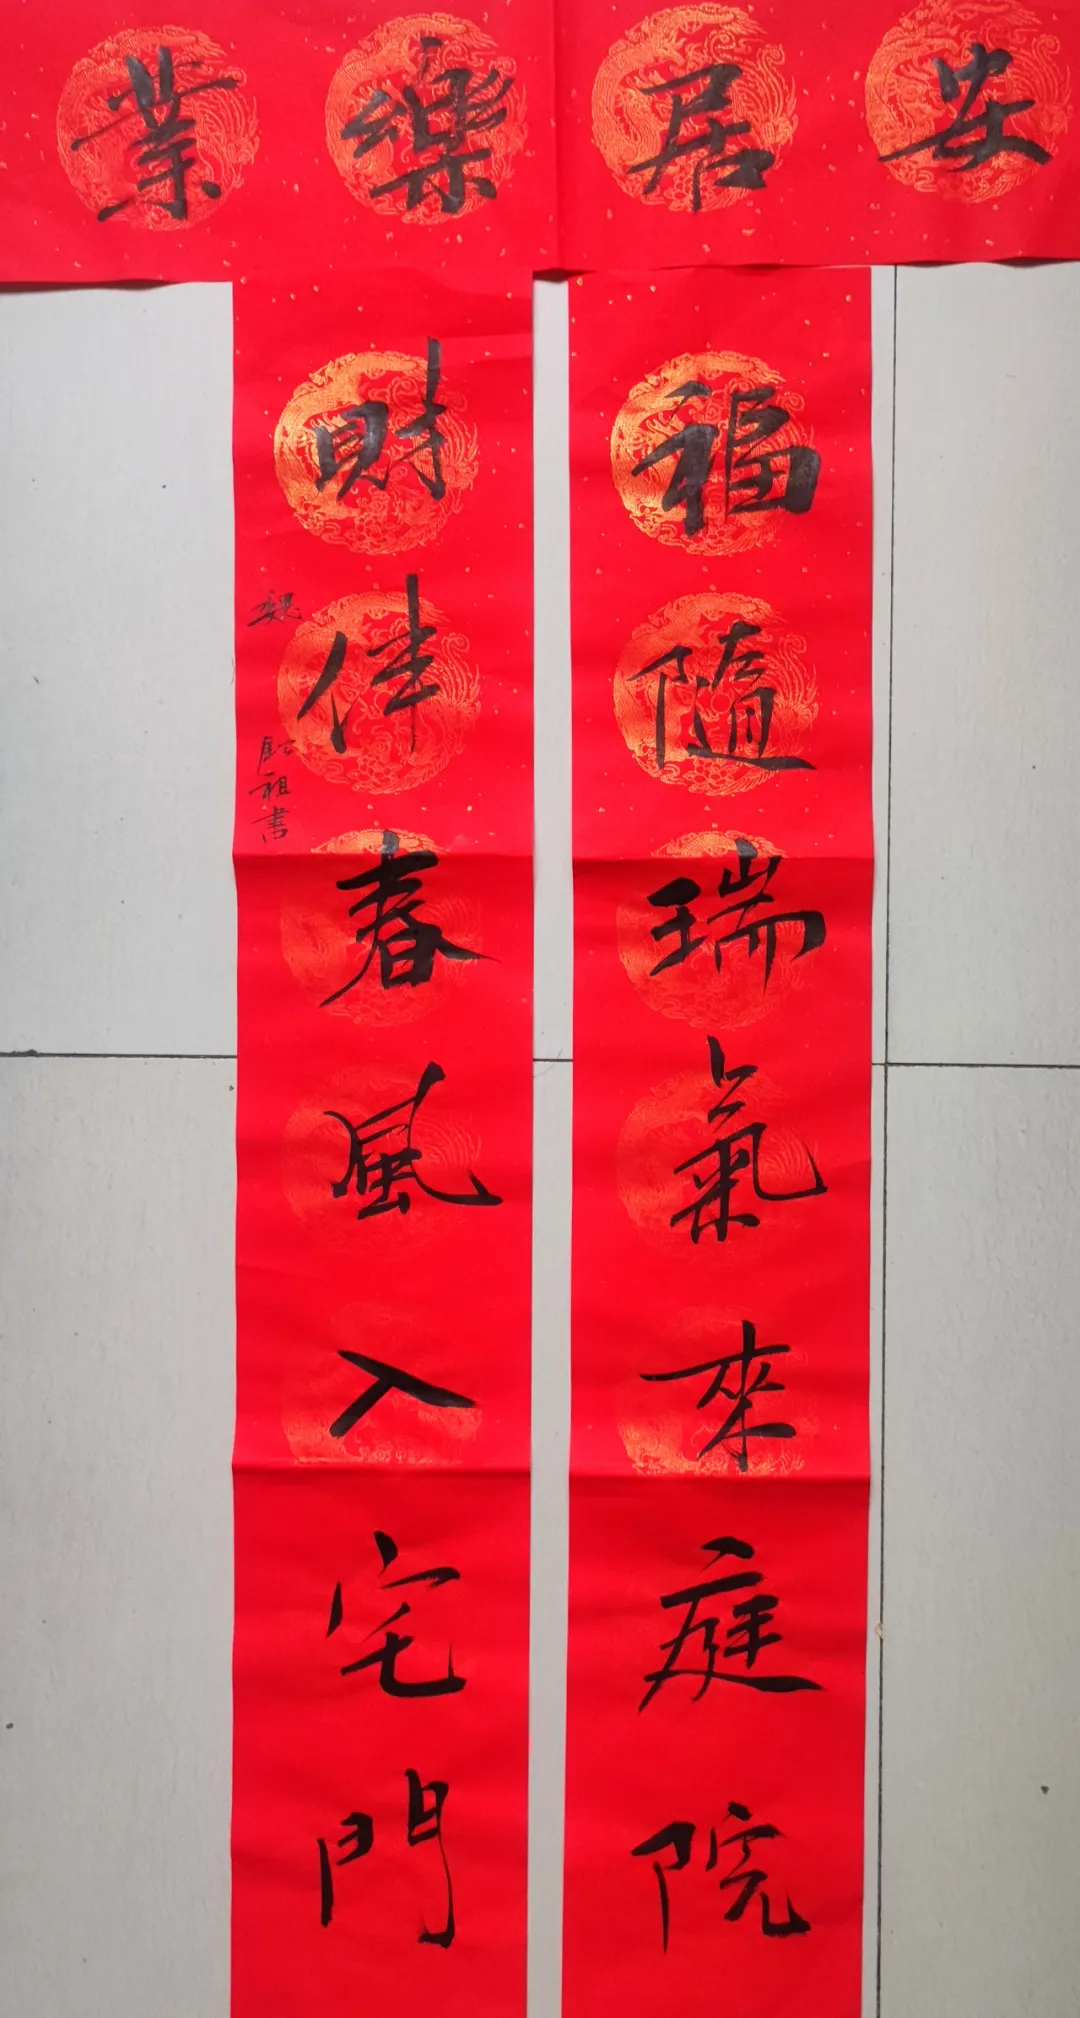 安居樂業
福隨瑞氣來庭院
財伴春風入宅門
魏
祖書